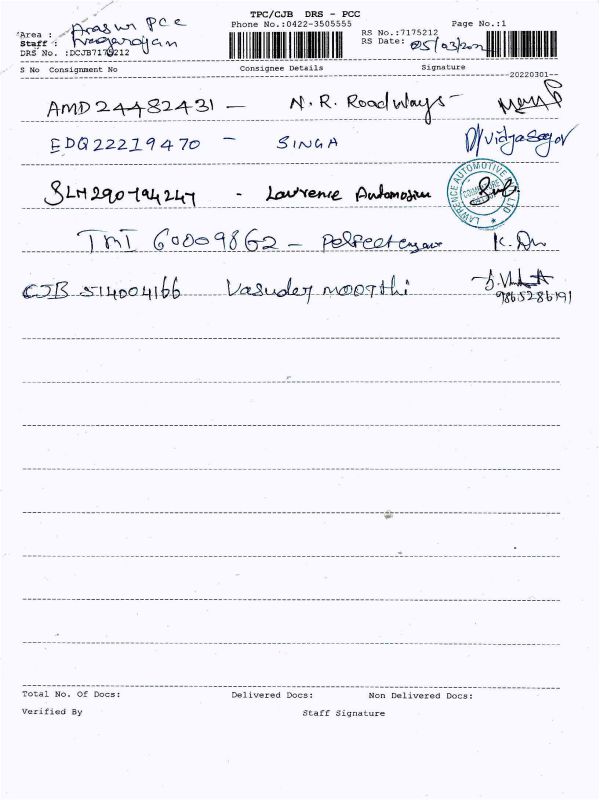 TPC/CJB DRS - PCC
Area : Arasur PCC Phone No.:0422-3505555 Page No.:1
Staff : Nagarajan RS No.:7175212
DRS No. :DCJB7175212 RS Date: 05/03/202
S No Consignment No Consignee Details Signature
--20220301--
AMD24482431 - N.R. Roadways -
EDQ22219470 - SINGA D/Vidyasagar
SLM290794247 - Lawrence Automotive
LAWRENCE AUTOMOTIVE LTD
TMT 60009862 - Perfect
CJB 514004166 Vasudev moorthi
9865286191
Total No. Of Docs: Delivered Docs: Non Delivered Docs:
Verified By Staff Signature